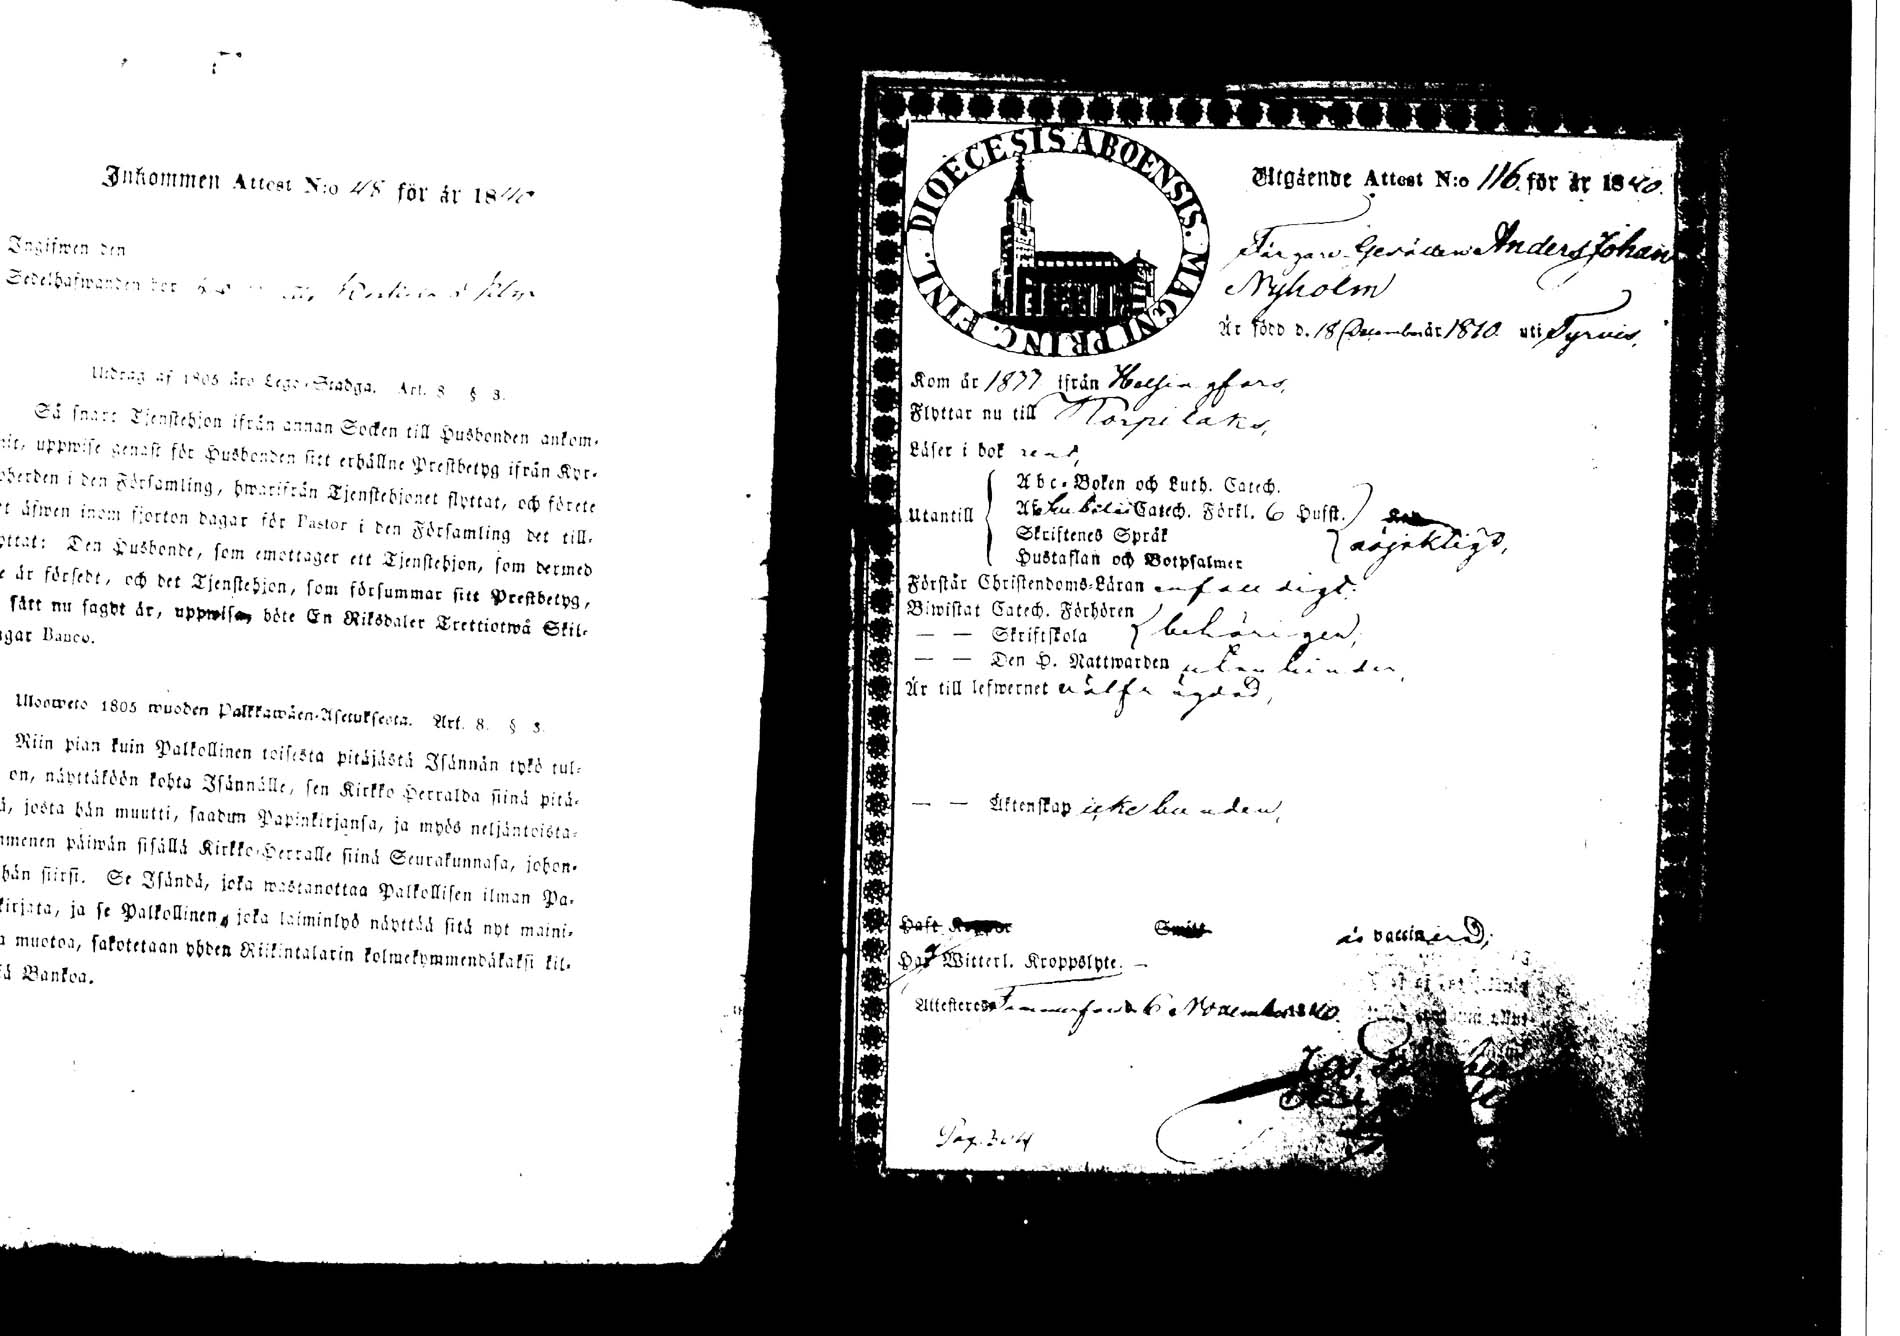 Inkommen Attest N:o 48 för år 1840
Ingifwen den
Sedelhafwanden bor
Utdrag af 1805 års Lego-Stadga. Art. 8 § 3.
Så snart Tjenstehjon ifrån annan Socken till Husbonden ankom-
mit, uppwise genast för Husbonden sitt erhållne Prestbetyg ifrån Kyr-
oherden i den Församling, hwarifrån Tjenstehjonet flyttat, och förete
et äfwen inom fjorton dagar för Pastor i den Församling det till-
yttat: Den Husbonde, som emottager ett Tjenstehjon, som dermed
e är försedt, och det Tjenstehjon, som försummar sitt Prestbetyg,
sätt nu sagdt är, uppwisa, böte En Riksdaler Trettiotwå Skil-
ngar Banco.
Ulosweto 1805 wuoden Palkkawäen-Asetuksesta. Art. 8. § 3.
Niin pian kuin Palkollinen toisesta pitäjästä Isännän tykö tul-
on, näyttäköön kohta Isännälle, sen Kirkko-Herralda siinä pitä-
ä, josta hän muutti, saadun Papinkirjansa, ja myös neljäntoista-
mmenen päiwän sisällä Kirkko-Herralle siinä Seurakunnasa, johon-
hän siirsi. Se Isändä, joka wastanottaa Palkollisen ilman Pa-
kirjata, ja se Palkollinen, joka laiminlyö näyttää sitä nyt maini-
a muotoa, sakotetaan yhden Riikintalarin kolmekymmendäkaksi kil-
iä Bankoa.
DIOECESIS ABOENSIS. MAGNI PRINC. FINL.
Utgående Attest N:o 116. för år 1840.
Färgare Gesällen Anders Johan
Nyholm
Är född d. 18 December år 1810. uti Tyrvis,
Kom år 1837 ifrån Helsingfors,
Flyttar nu till Korpilaks,
Läser i bok rent,
Utantill
Abc-Boken och Luth. Catech.
Catech. Förkl. 6 Hufst.
Skriftenes Språk
Hustaflan och Botpsalmer
nöjaktigt,
Förstår Christendoms-Läran enfalldigt.
Biwistat Catech. Förhören
— — Skriftskola
behörigen,
— — Den H. Nattwarden utan hinder,
Är till lefwernet välfrägdad,
— — Äktenskap icke bunden,
Haft Koppor
Smitt
är vaccinerad;
Har Witterl. Kroppslyte. —
Attesteres Tammerfors d. 6 November 1840.
Pag. 304